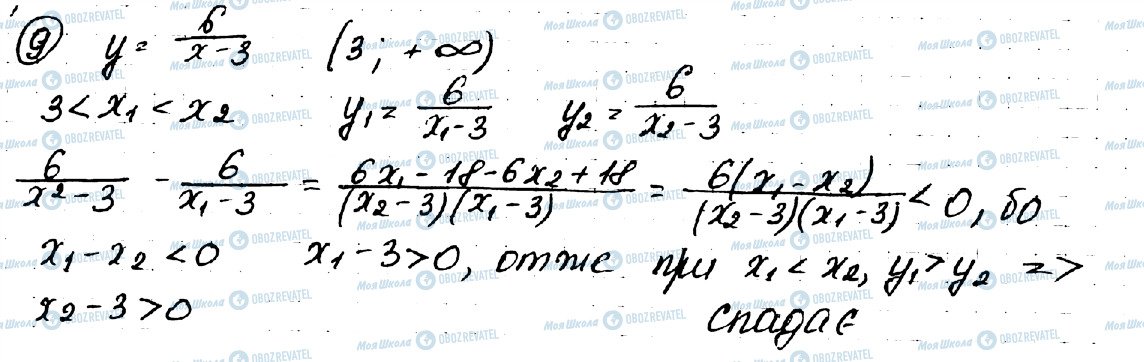 9 y = 6/(x-3) (3; +∞)
3 < x₁ < x₂ y₁ = 6/(x₁-3) y₂ = 6/(x₂-3)
6/(x₂-3) - 6/(x₁-3) = (6x₁-18-6x₂+18)/((x₂-3)(x₁-3)) = 6(x₁-x₂)/((x₂-3)(x₁-3)) < 0, бо
x₁-x₂ < 0 x₁-3 > 0, отже при x₁ < x₂, y₁ > y₂ =>
x₂-3 > 0 спадає